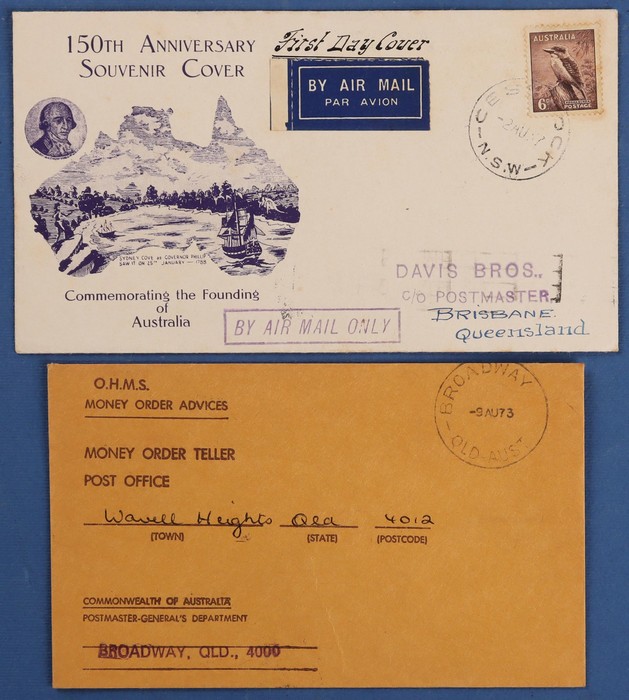 150TH ANNIVERSARY
SOUVENIR COVER
First Day Cover
BY AIR MAIL
PAR AVION
AUSTRALIA
6D
POSTAGE
N.S.W
SYDNEY COVE as GOVERNOR PHILLIP
SAW IT ON 25TH JANUARY — 1788
Commemorating the Founding
of
Australia
BY AIR MAIL ONLY
DAVIS BROS.,
C/O POSTMASTER,
BRISBANE.
Queensland
O.H.M.S.
MONEY ORDER ADVICES
BROADWAY
-9AU73
QLD-AUST
MONEY ORDER TELLER
POST OFFICE
Wavell Heights Qld 4012
(TOWN) (STATE) (POSTCODE)
COMMONWEALTH OF AUSTRALIA
POSTMASTER-GENERAL'S DEPARTMENT
BROADWAY, QLD., 4000